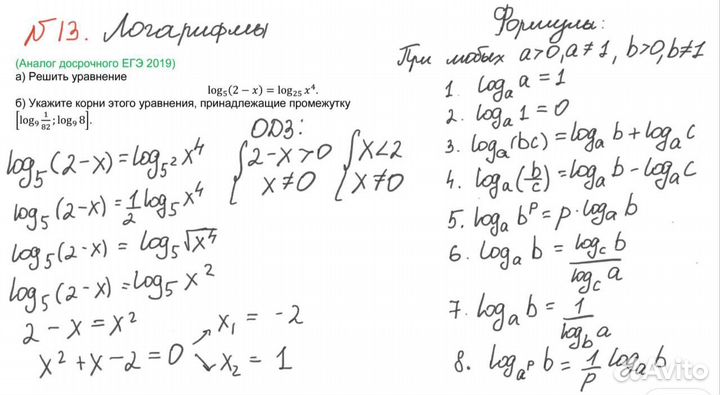 №13. Логарифмы
(Аналог досрочного ЕГЭ 2019)
а) Решить уравнение
log₅(2 − x) = log₂₅ x⁴.
б) Укажите корни этого уравнения, принадлежащие промежутку
[log₉ 1/82 ; log₉ 8].
log₅(2-x)=log₅² x⁴
log₅(2-x)=1/2 log₅ x⁴
log₅(2-x) = log₅ √x⁴
log₅(2-x)=log₅ x²
2-x=x²
x²+x-2=0
x₁ = -2
x₂ = 1
ОДЗ:
{2-x>0 {x<2
{x≠0 {x≠0
Формулы:
При любых a>0, a≠1, b>0, b≠1
1. logₐ a = 1
2. logₐ 1=0
3. logₐ(bc)=logₐ b+logₐ c
4. logₐ(b/c)=logₐ b-logₐ c
5. logₐ bᵖ=p·logₐ b
6. logₐ b = log_c b / log_c a
7. logₐ b= 1 / log_b a
8. log_aᵖ b= 1/p logₐ b
Avito